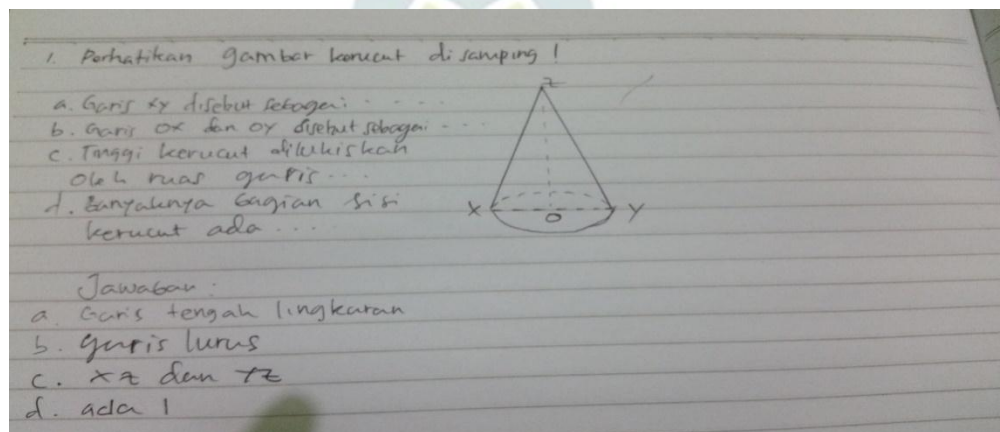 1. Perhatikan gambar kerucut disamping !
a. Garis xy disebut sebagai . . . .
b. Garis ox dan oy disebut sebagai . . .
c. Tinggi kerucut dilukiskan
oleh ruas garis . . .
d. Banyaknya bagian sisi
kerucut ada . . . .
Z
X O Y
Jawaban :
a. Garis tengah lingkaran
b. garis lurus
c. xz dan yz
d. ada 1